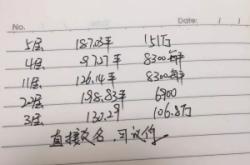 No.
Date
5层 187.03平 151万
4层 97.27平 8300每平
11层 126.14平 8300每平
22层 198.83平 6900
3层 130.29 106.8万
直接更名，可议价